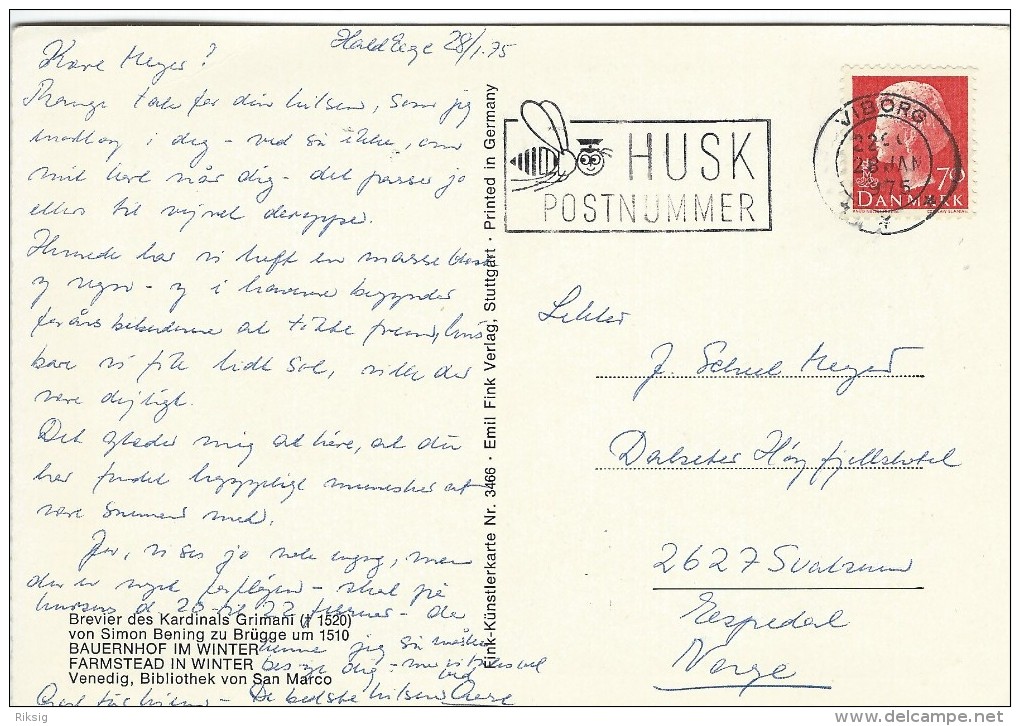 Hald Ege 28/1.75
Kære Meyer!
Mange tak for din hilsen, som jeg
modtog i dag - ved du ikke, om
mit kort når dig - det passer jo
ellers til vejret deroppe.
har vi haft en masse blæst
og regn - og i haverne begynder
forårsbebuderne at titte frem, hvis
bare vi fik lidt sol, ville det
være dejligt.
Det glæder mig at høre, at du
har fundet hyggelige mennesker at
være sammen med.
Jo, vi ses jo nok engang, men
- skal på
kursus d. 20 22 februar -
kunne jeg så måske
besøge dig -
God tur hjem - De bedste hilsner
Brevier des Kardinals Grimani († 1520)
von Simon Bening zu Brügge um 1510
BAUERNHOF IM WINTER
FARMSTEAD IN WINTER
Venedig, Bibliothek von San Marco
Fink-Künstlerkarte Nr. 3466 · Emil Fink Verlag, Stuttgart · Printed in Germany
HUSK
POSTNUMMER
VIBORG
28 JAN
1975
DANMARK
Lektor
J. Schul Meyer
Dalseter Høyfjellshotel
2627 Svatsum
Espedal
Norge
Riksig
delcampe.net